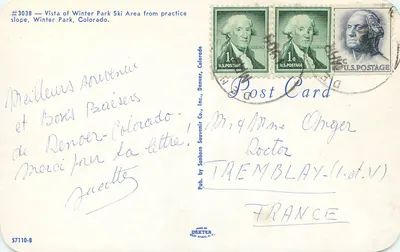 #3038 — Vista of Winter Park Ski Area from practice
slope, Winter Park, Colorado.
1¢
U.S.POSTAGE
1¢
U.S.POSTAGE
5¢
U.S.POSTAGE
DENVER
Post Card
Meilleurs souvenirs
et Bons Baisers
de Denver-Colorado.
Merci pour ta lettre!
Pub. by Sanborn Souvenir Co., Inc., Denver, Colorado
M. & Mme
Docteur
TREMBLAY-(I. et V)
FRANCE
MADE BY
DEXTER
57110-B